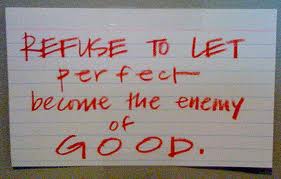 REFUSE TO LET
perfect
become the enemy
of
GOOD.